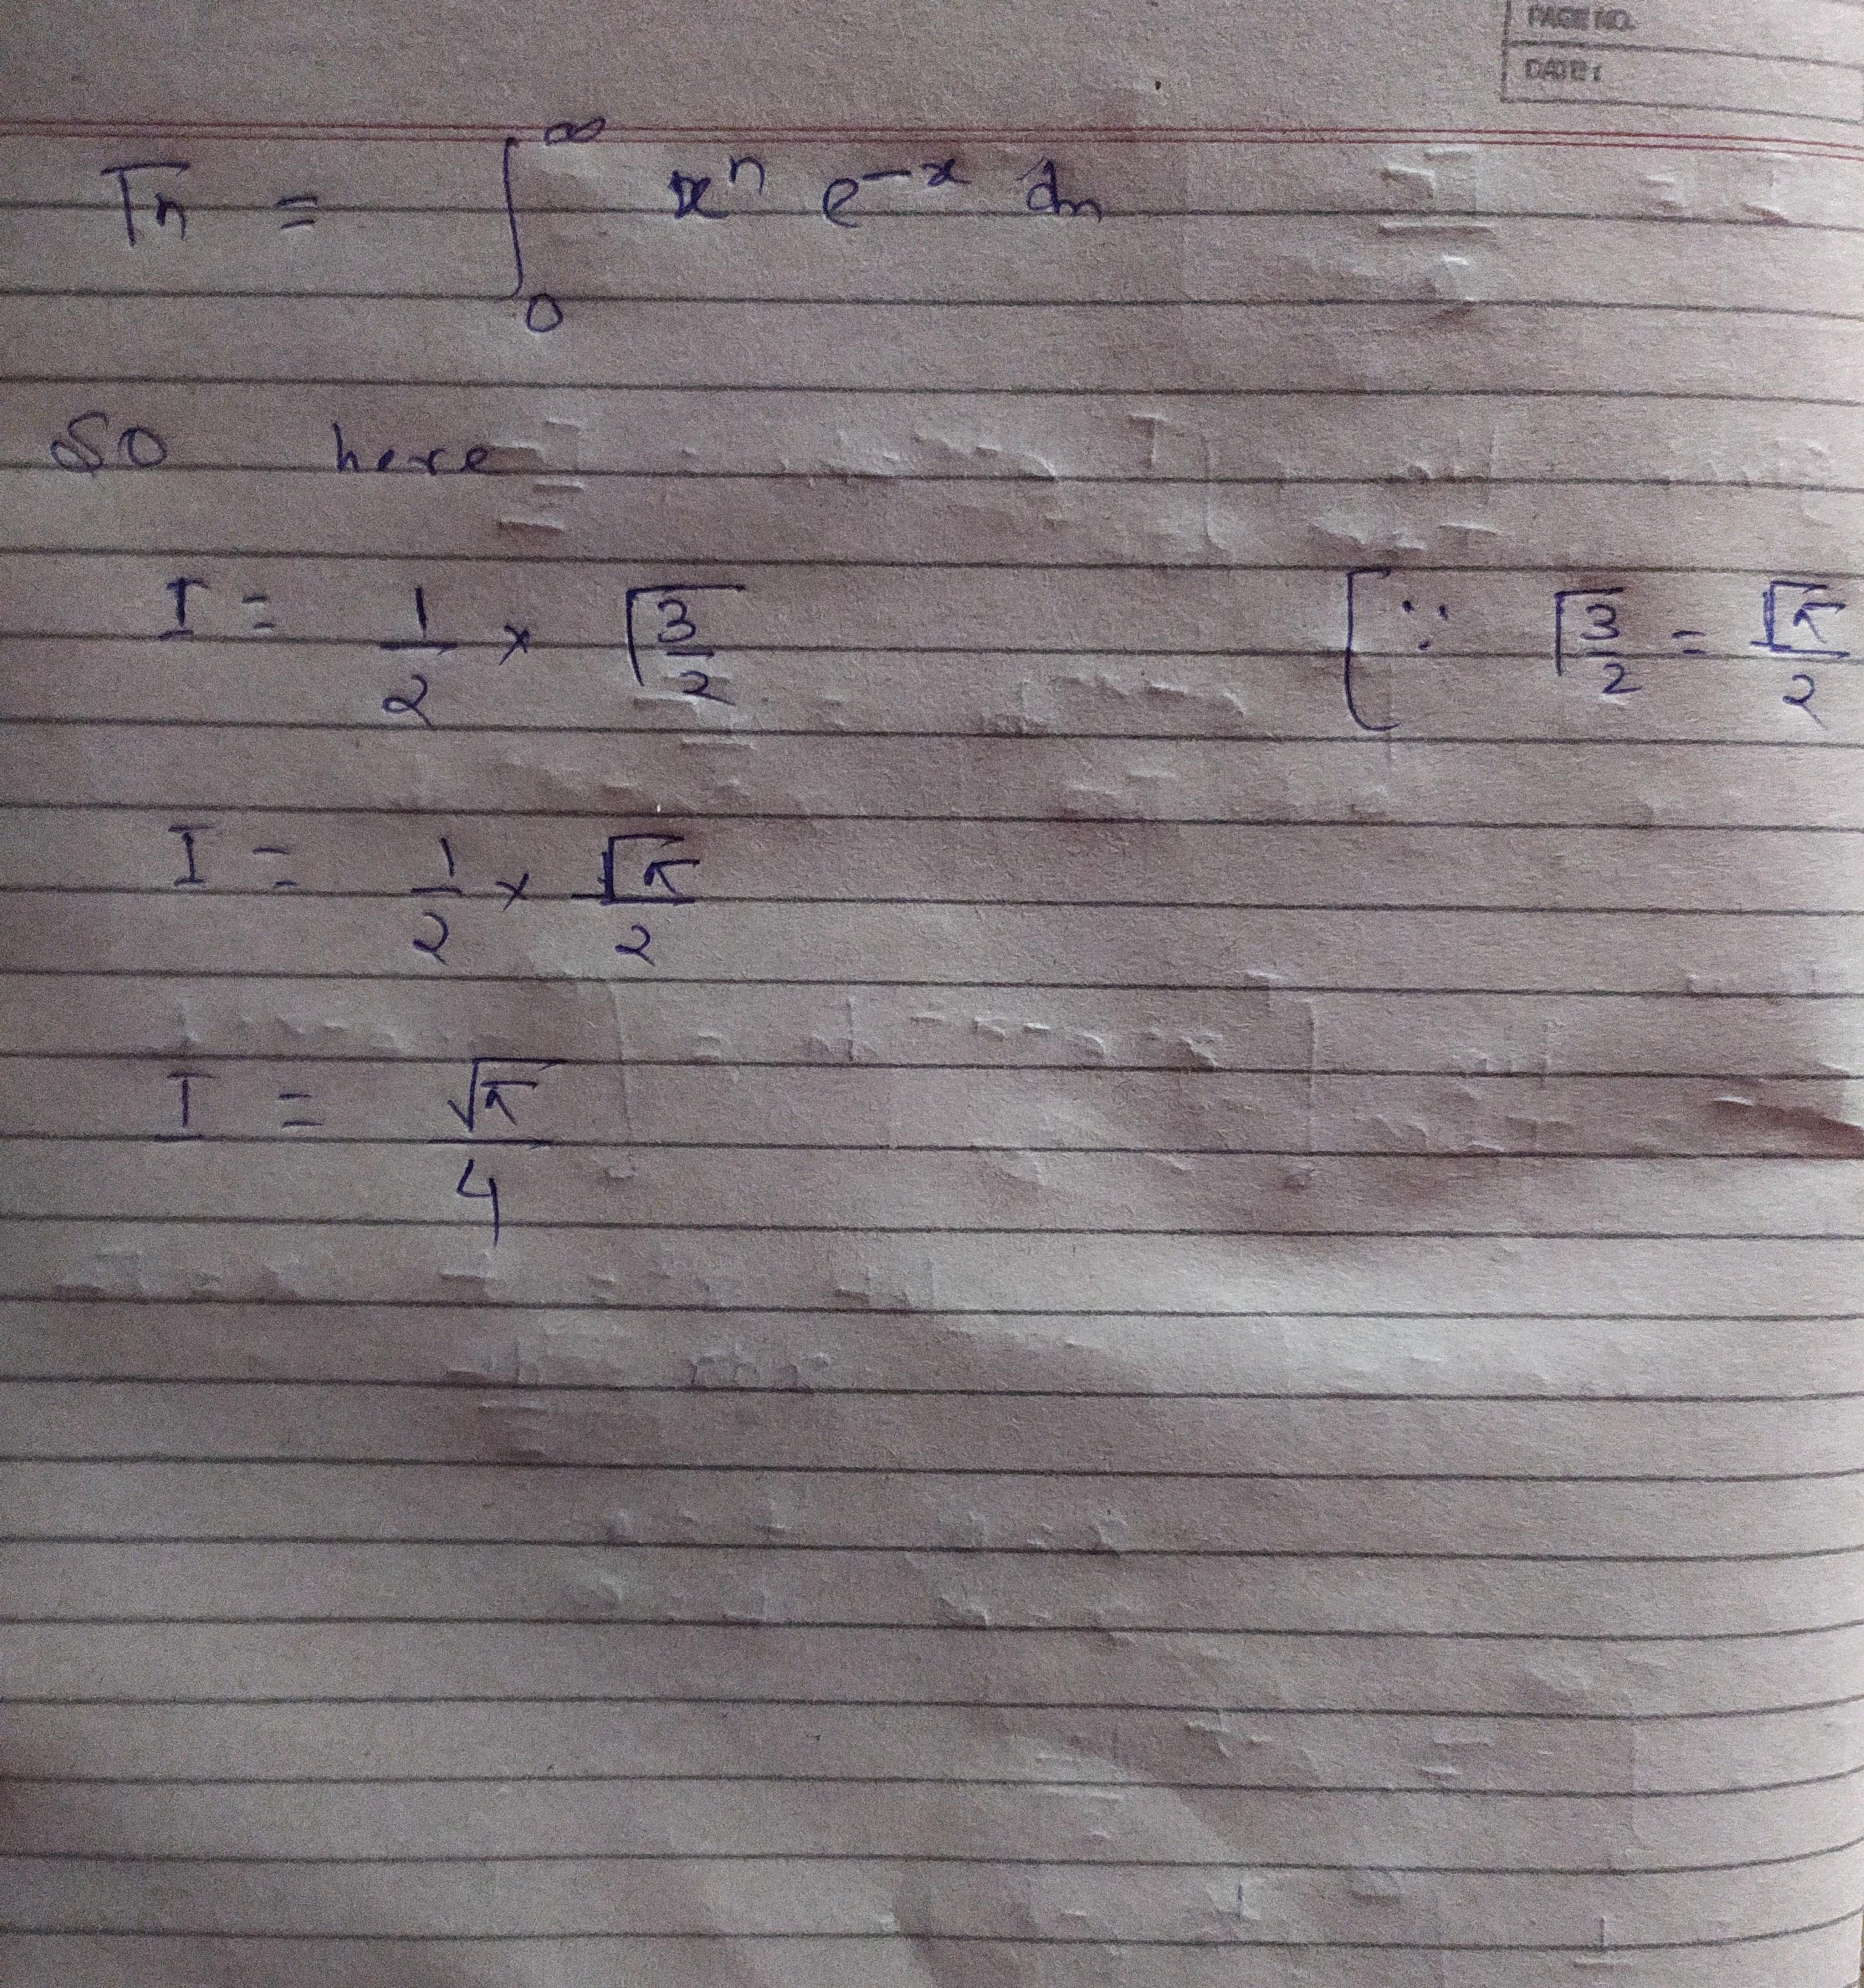 PAGE NO.
DATE:
Γn = ∫₀^∞ xⁿ e⁻ˣ dn
So here
I = 1/2 × Γ3/2 [∵ Γ3/2 = √π/2
I = 1/2 × √π/2
I = √π/4